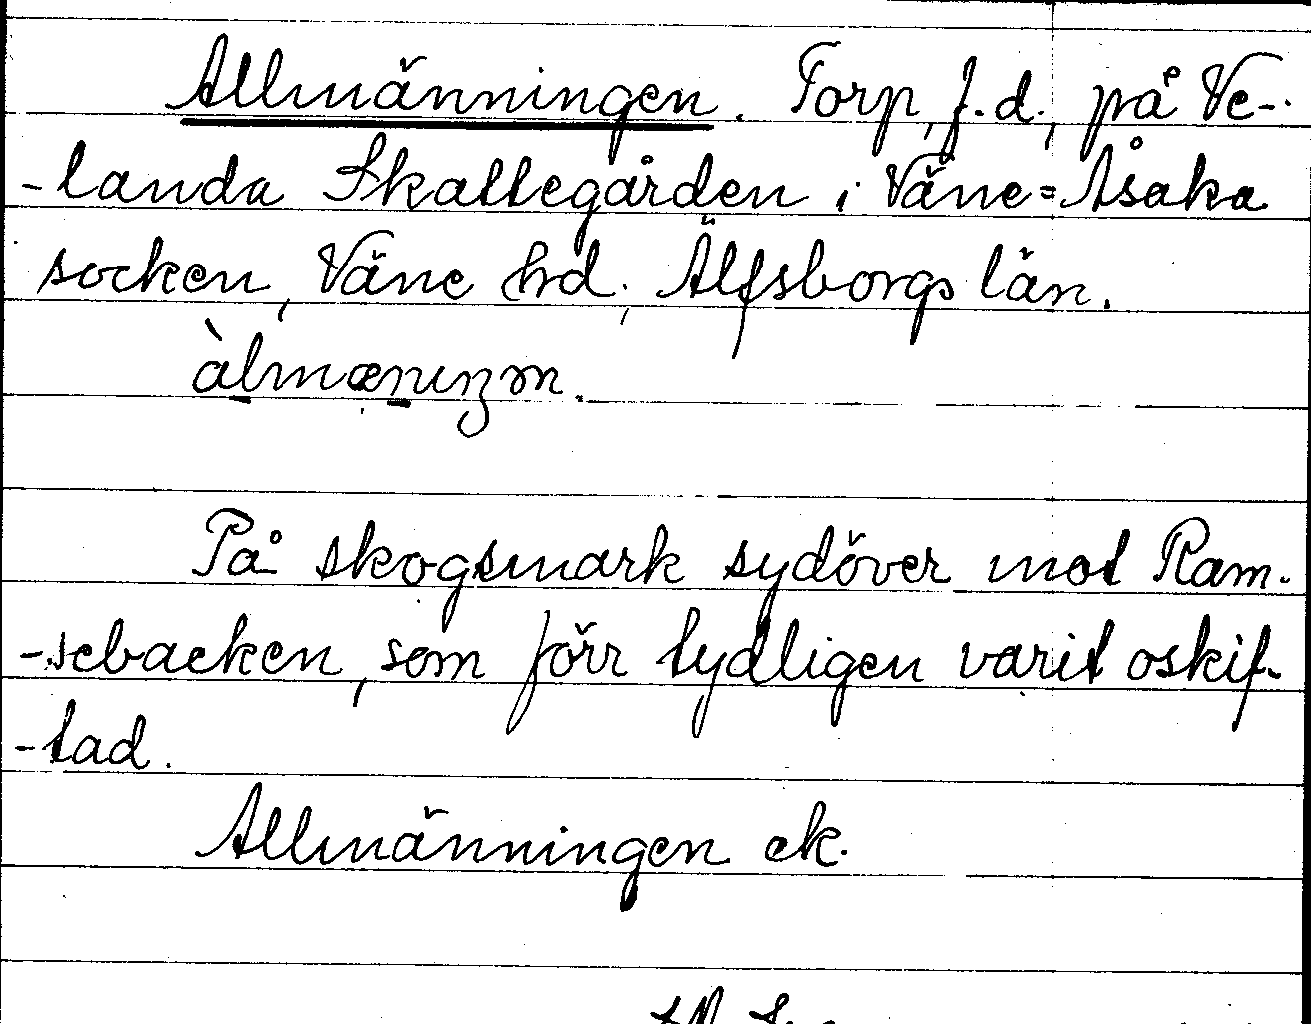 Allmänningen. Torp, f.d., på Ve-
-landa Skattegården i Väne=Åsaka
socken, Väne hd, Älfsborgs län.
På skogsmark sydöver mot Ram-
-sebacken, som förr tydligen varit oskif-
-tad.
Allmänningen ek.